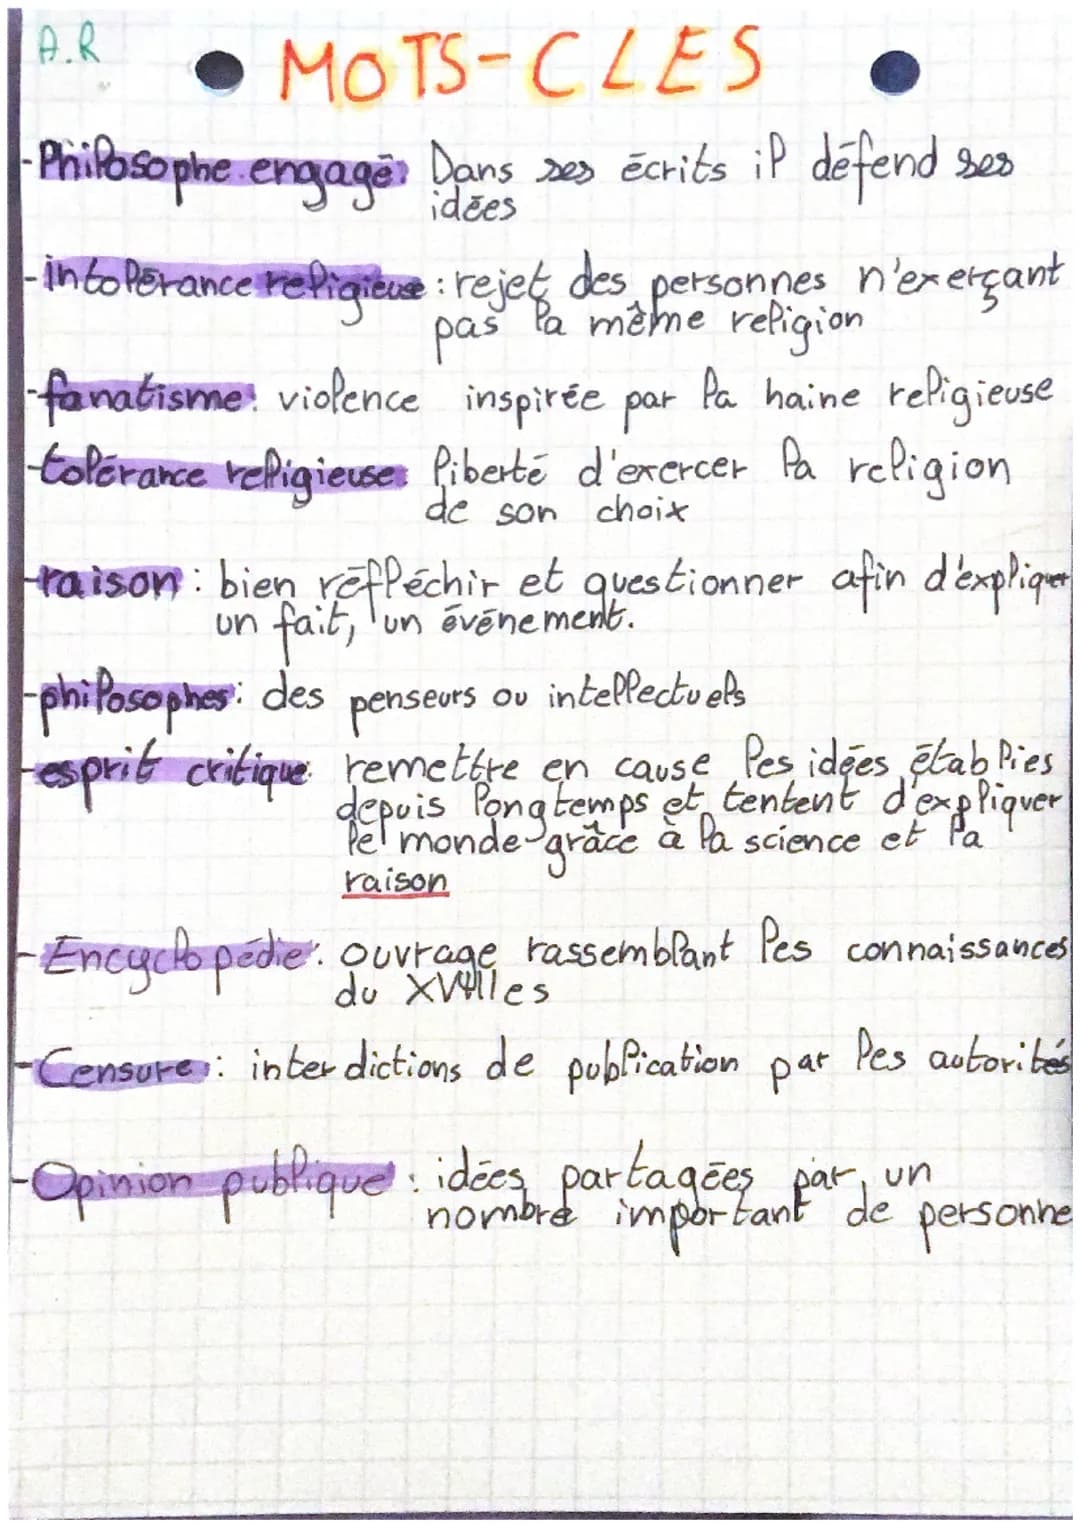 A.R
MOTS-CLES
-Philosophe engagé: Dans ses écrits il défend ses
idées
-intolérance religieuse : rejet des personnes n'exerçant
pas la même religion
-fanatisme: violence inspirée par la haine religieuse
-tolérance religieuse: liberté d'exercer la religion
de son choix
-raison : bien réfléchir et questionner afin d'expliquer
un fait, un événement.
-philosophes: des penseurs ou intellectuels
-esprit critique: remettre en cause les idées établies
depuis longtemps et tentent d'expliquer
le monde grâce à la science et la
raison
-Encyclopédie: ouvrage rassemblant les connaissances
du XVIIIes
-Censure : interdictions de publication par les autorités
-Opinion publique : idées partagées par un
nombre important de personne